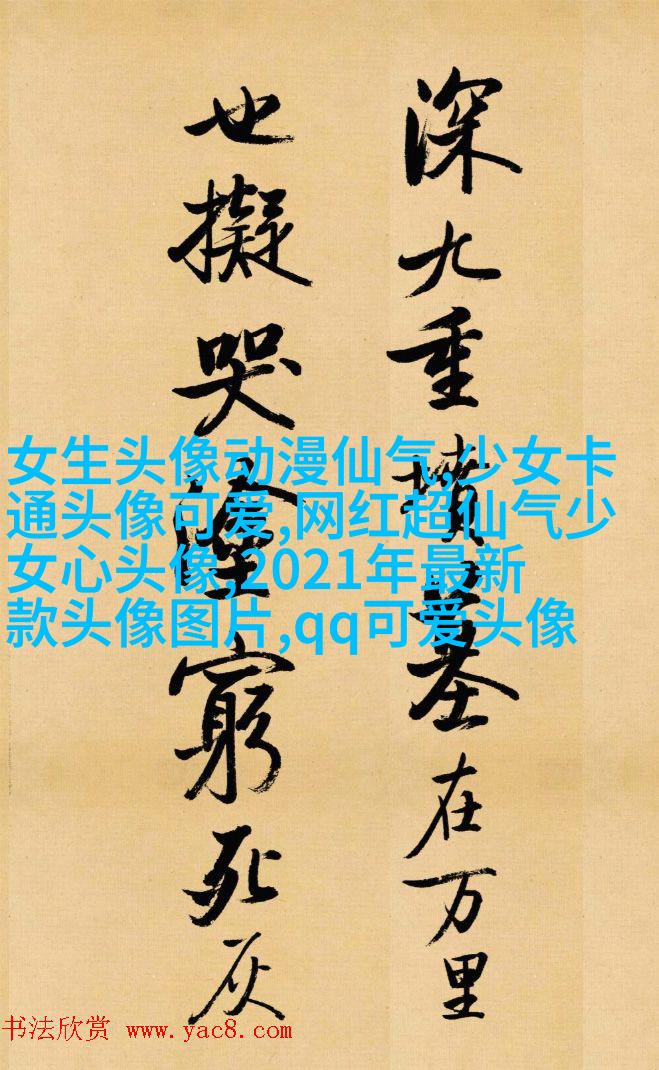 深九重墳墓在万里
也擬哭塗窮死灰
女生头像动漫仙气,少女卡
通头像可爱,网红超仙气少
女心头像,2021年最新
款头像图片,qq可爱头像
书法欣赏 www.yac8.com